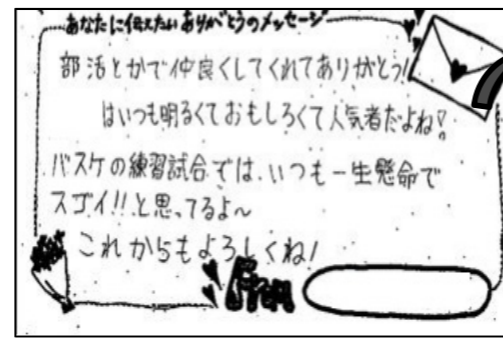 あなたに伝えたいありがとうのメッセージ
部活とかで仲良くしてくれてありがとう!
はいつも明るくておもしろくて人気者だよね!
バスケの練習試合では、いつも一生懸命で
スゴイ!!と思ってるよ〜
これからもよろしくね!
From